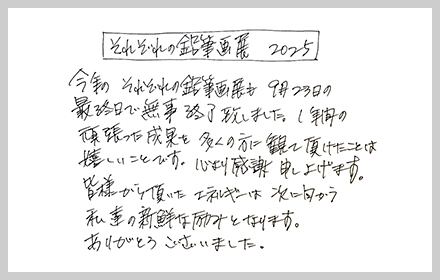 それぞれの鉛筆画展 2025
今年の それぞれの鉛筆画展も 9月23日の
最終日で無事 終了致しました。1年間の
頑張った成果を 多くの方に観て頂けたことは
嬉しいことです。心より感謝 申し上げます。
皆様から頂いた エネルギーは 次に向かう
私達の新鮮な励みとなります。
ありがとう ございました。